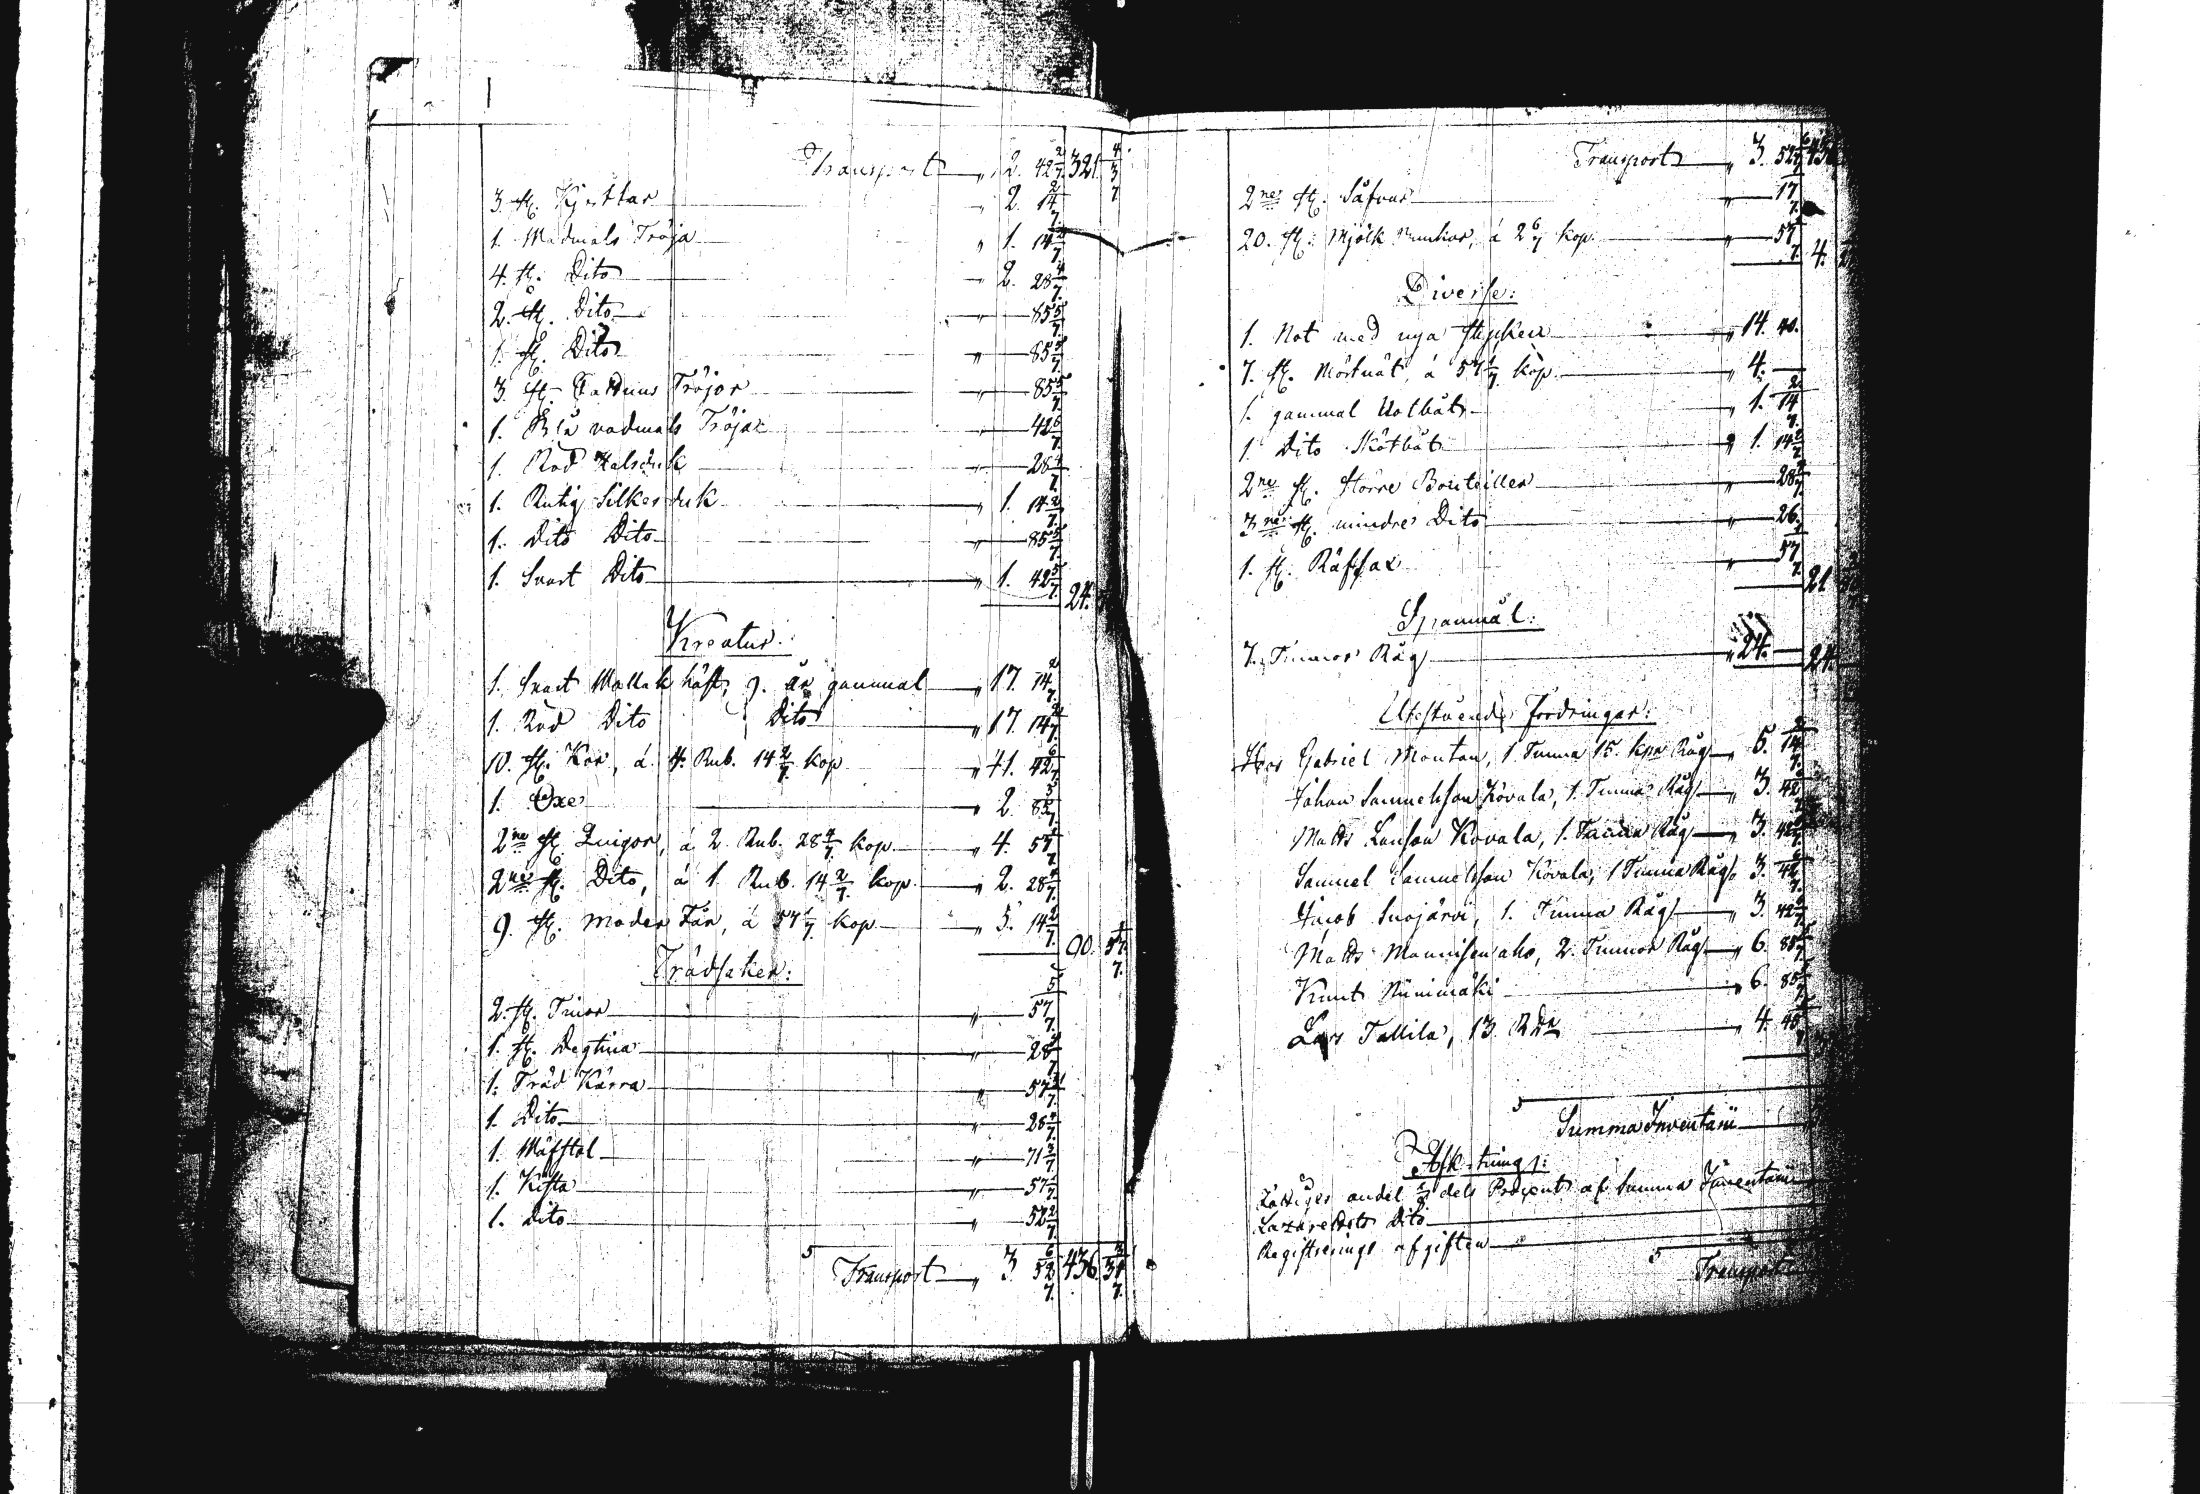 Transport „ 2. 42 2/7. 321. 3 4/7
3. st. Kjortlar „ 2. 14 2/7.
1. Wadmals Tröja „ 1. 14 2/7
4. st. Dito „ 2. 28 4/7.
2. st. Dito „ 85 5/7
1. st. Dito „ 85 5/7
3. st. Cattuns Tröjor „ 85 5/7.
1. Blå vadmals Tröja „ 42 6/7
1. Röd Halsduk „ 28 4/7
1. Rutig Silkes duk „ 1. 14 2/7.
1. Dito Dito „ 85 5/7.
1. Svart Dito „ 1. 42 6/7. 24.
Kreatur:
1. Svart Wallak häst, 9. år gammal „ 17. 14 2/7.
1. Röd Dito Dito „ 17. 14 2/7.
10. st. Kor, á 4. Rub. 14 2/7 kop „ 41. 42 6/7
1. Oxe „ 2. 85 5/7
2ne st. Quigor, á 2. Rub. 28 4/7 kop „ 4. 57 1/7
2ne st. Dito, á 1. Rub. 14 2/7 kop. „ 2. 28 4/7.
9. st. Moder Får, á 57 1/7 kop „ 5. 14 2/7. 90. 57 1/7.
Trädsaker:
2. st. Tinor „ 57 1/7.
1. st. Degtina „ 28 4/7
1. Träd Kärra „ 57 1/7.
1. Dito „ 28 4/7.
1. Wäfstol „ 71 3/7
1. Kista „ 57 1/7
1. Dito „ 52 2/7.
Transport „ 3. 52 6/7. 436. 31 3/7.
Transport „ 3. 52 6/7. 436
2ne st. Såfvar „ 17 1/7.
20. st. Mjölk Bunkar, á 2 6/7 kop. „ 57 1/7. 4.
Diverse:
1. Not med nya stycken „ 14. 40.
7. st. Mörtnät, á 57 1/7 kop. „ 4. —
1. gammal Notbåt „ 1. 14 2/7.
1. Dito Skötbåt „ 1. 14 2/7
2ne st. Större Bouteiller „ 28 4/7.
3ne st. mindre Dito „ 26.
1. st. Räfsax „ 57 1/7. 21
Spanmål:
7. Tunnor Råg „ 24. — 24.
Utestående Fordringar:
Hos Gabriel Montan, 1. Tunna 15. kpr Råg „ 5. 14 2/7.
Johan Samuelsson Kovala, 1. Tunna Råg „ 3. 42 6/7
Matts Larsson Kovala, 1. Tunna Råg „ 3. 42 6/7
Samuel Samuelsson Kovala, 1 Tunna Råg „ 3. 42 6/7.
Jacob Suojärvi, 1. Tunna Råg „ 3. 42 6/7
Matts Mannisenaho, 2. Tunnor Råg „ 6. 85 5/7
Knut Niinimäki „ 6. 85 5/7
Lars Tallila, 13. RDr „ 4. 45
Summa Inventarii
Afkortning:
Fattiges andel 1/8 dels Procent af Summa Inventarii
Lazarettets Dito
Registrerings afgiften
Transport